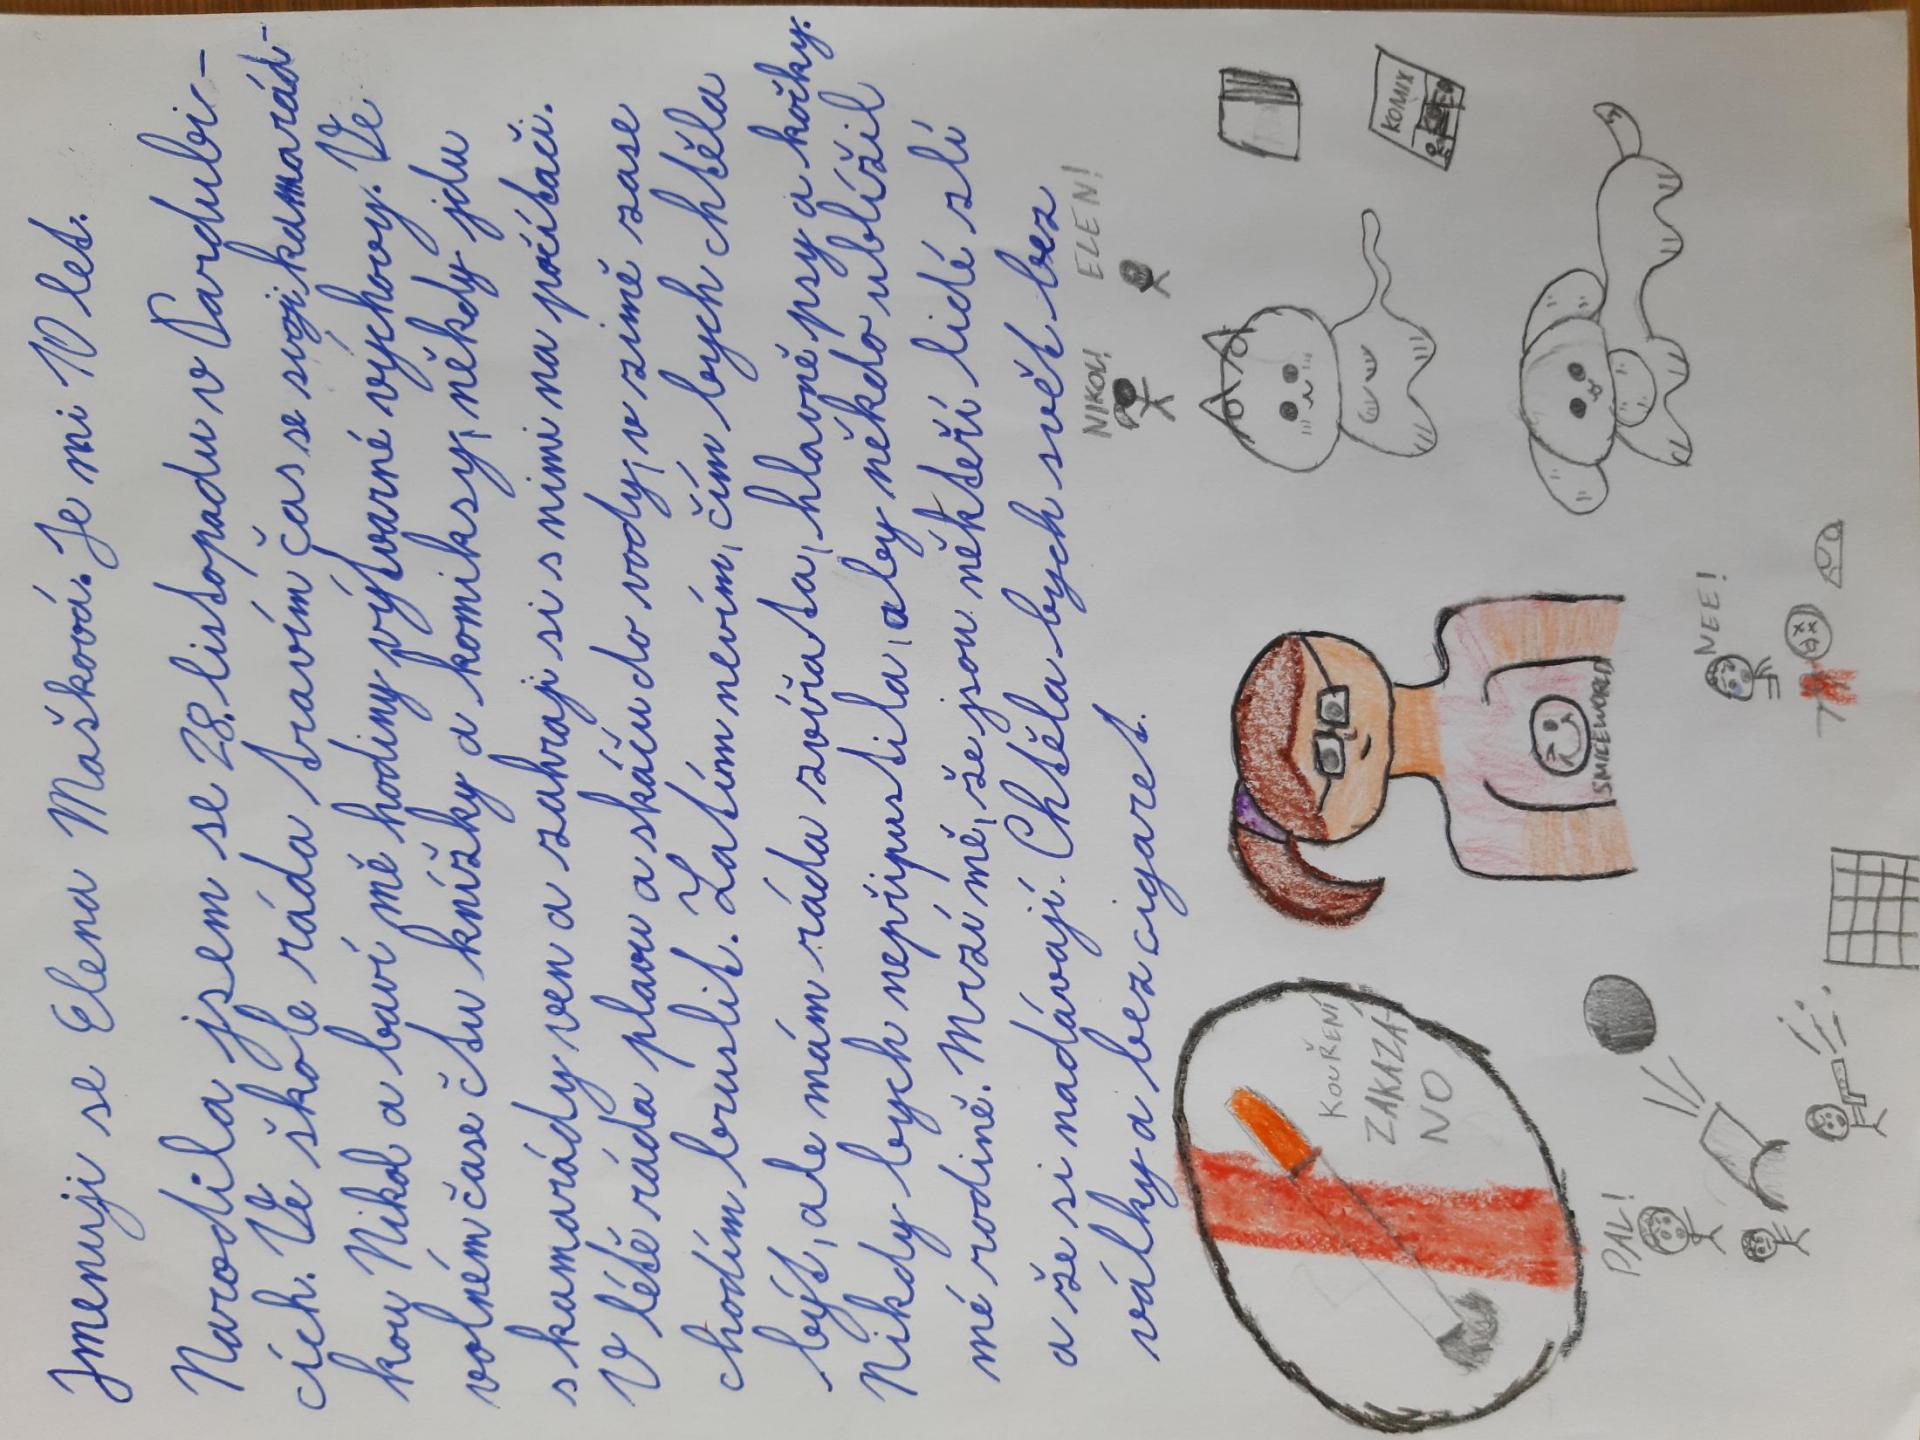 Jmenuji se Elena Mašková. Je mi 10 let.
Narodila jsem se 28. listopadu v Pardubic-
cích. Ve škole ráda trávím čas se svoji kamarád-
kou Nikol a baví mě hodiny výtvarné výchovy. Ve
volném čase čtu knížky a komiksy, někdy jdu
s kamarády ven a zahraji si s nimi na počítači.
V létě ráda plavu a skáču do vody, v zimě zase
chodím bruslit. Zatím nevím, čím bych chtěla
být, ale mám ráda zvířata, hlavně psy a kočky.
Nikdy bych nepřipustila, aby někdo ublížil
mé rodině. Mrzí mě, že jsou někteří lidé zlí
a že si nadávají. Chtěla bych svět bez
války a bez cigaret.
NIKOL! ELEN!
KOUŘENÍ
ZAKÁZÁ-
NO
SMICEWORLD
KOMIX
PAL!
NEE!